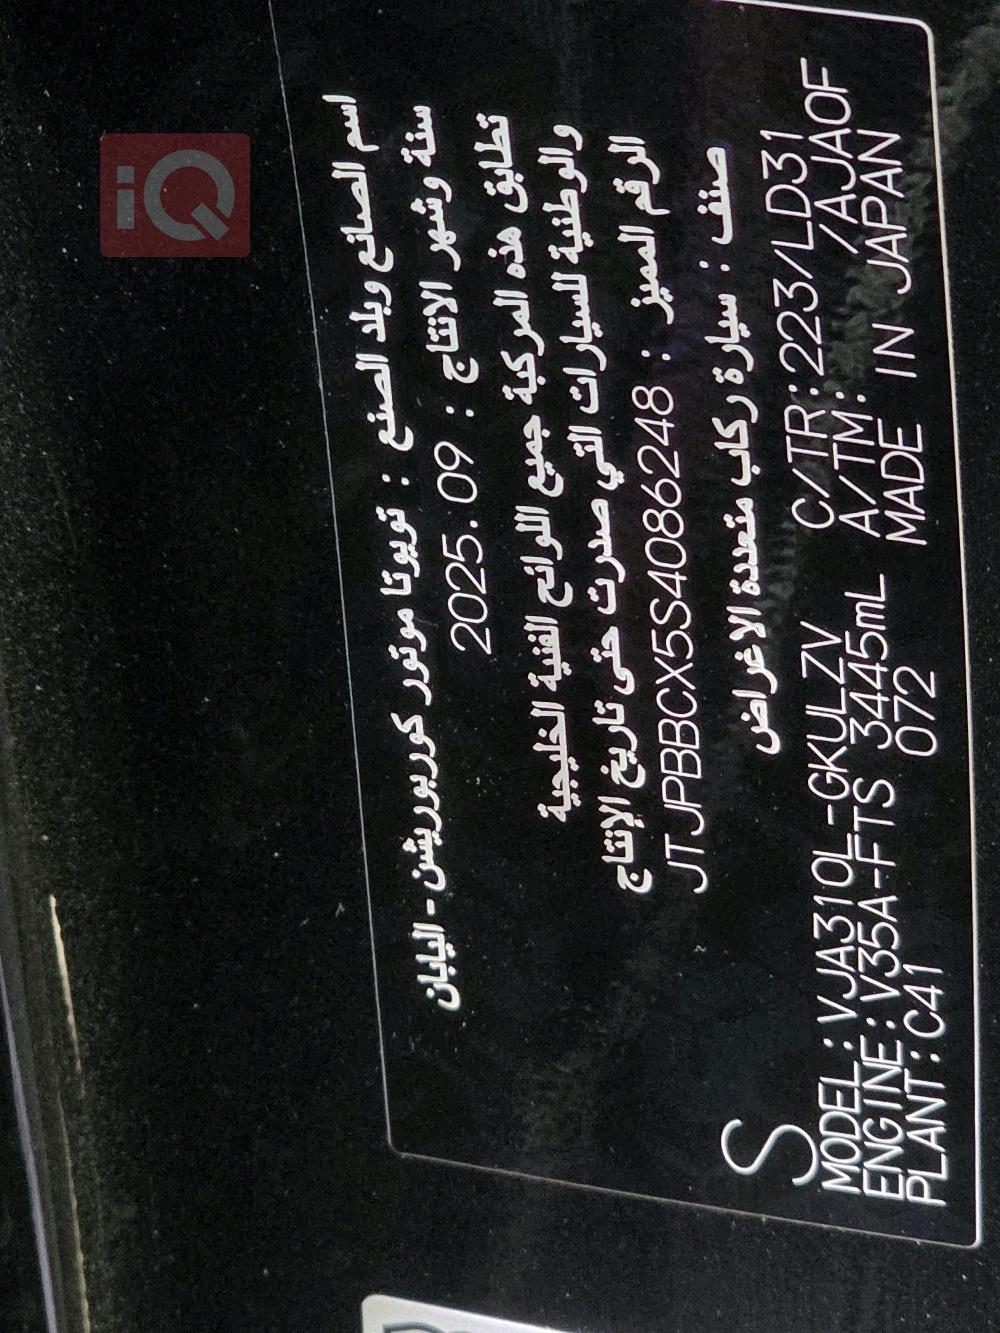 iQ
اسم الصانع وبلد الصنع : تويوتا موتور كوربوريشن - اليابان
سنة وشهر الانتاج : 2025.09
تطابق هذه المركبة جميع اللوائح الفنية الخليجية
والوطنية للسيارات التي صدرت حتى تاريخ الإنتاج
الرقم المميز : JTJPBBCX5S4086248
صنف : سيارة ركاب متعددة الاغراض
S
MODEL:VJA310L-GKULZV C/TR:223/LD31
ENGINE:V35A-FTS 3445mL A/TM: /AJAOF
PLANT:C41 072 MADE IN JAPAN